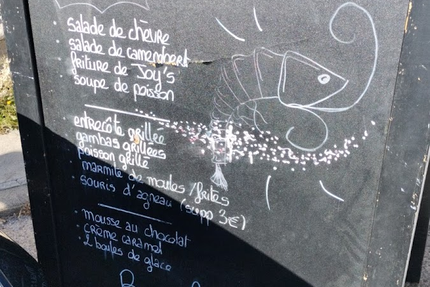 • salade de chèvre
salade de camembert
friture de Joy's
soupe de poisson
entrecôte grillée
gambas grillées
poisson grillé
• marmite de moules/frites
• souris d'agneau (supp 3€)
• mousse au chocolat
• crème caramel
• 2 boules de glace